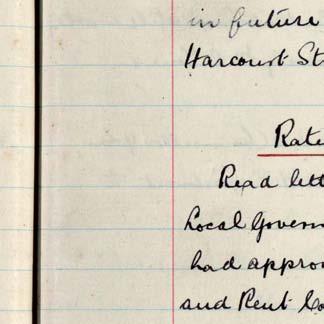 in future
Harcourt St
Rate
Read lett
Local Govern
had approv
and Rent Co